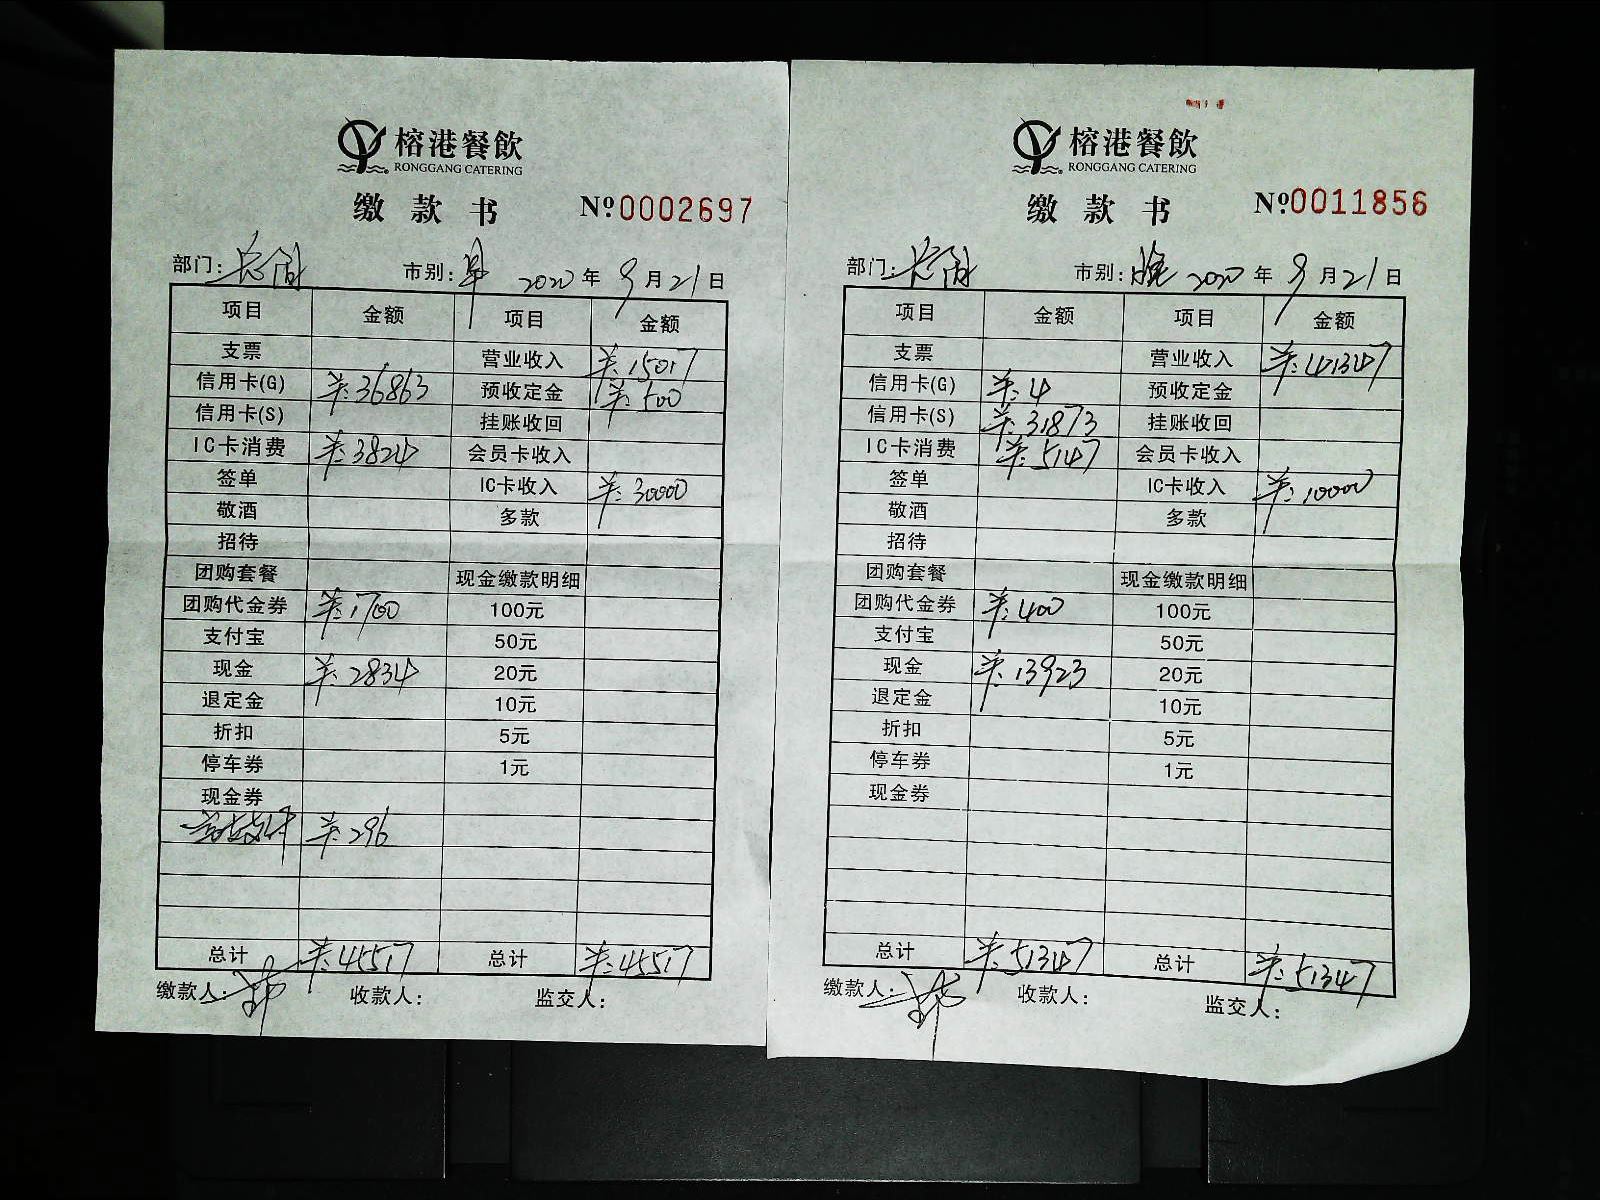 榕港餐飲
RONGGANG CATERING
缴款书 Nº0002697
部门: 总台 市别: 早 2020年9月21日
项目 金额 项目 金额
支票 营业收入 ¥:15017
信用卡(G) ¥:36863 预收定金 ¥:500
信用卡(S) 挂账收回
IC卡消费 ¥:3824 会员卡收入
签单 IC卡收入 ¥:30000
敬酒 多款
招待
团购套餐 现金缴款明细
团购代金券 ¥:1700 100元
支付宝 50元
现金 ¥:2834 20元
退定金 10元
折扣 5元
停车券 1元
现金券
¥:296
总计 ¥:45517 总计 ¥:45517
缴款人: 收款人: 监交人:
榕港餐飲
RONGGANG CATERING
缴款书 Nº0011856
部门: 总台 市别: 晚 2020年9月21日
项目 金额 项目 金额
支票 营业收入 ¥:41347
信用卡(G) ¥:4 预收定金
信用卡(S) ¥:31873 挂账收回
IC卡消费 ¥:5147 会员卡收入
签单 IC卡收入 ¥:10000
敬酒 多款
招待
团购套餐 现金缴款明细
团购代金券 ¥:400 100元
支付宝 50元
现金 ¥:13923 20元
退定金 10元
折扣 5元
停车券 1元
现金券
总计 ¥:51347 总计 ¥:51347
缴款人: 收款人: 监交人: